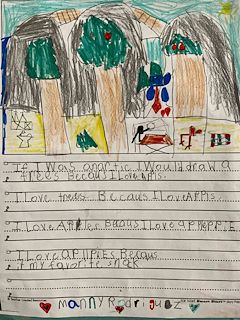 If I was anartic I Would draw a
trees Becaus I Love apls.
I Love trees. Becaus I Love APls.
I Love Apples Becaus I Love apples
I Love apples Becaus
it my favorite snack
Manny Rodriguez